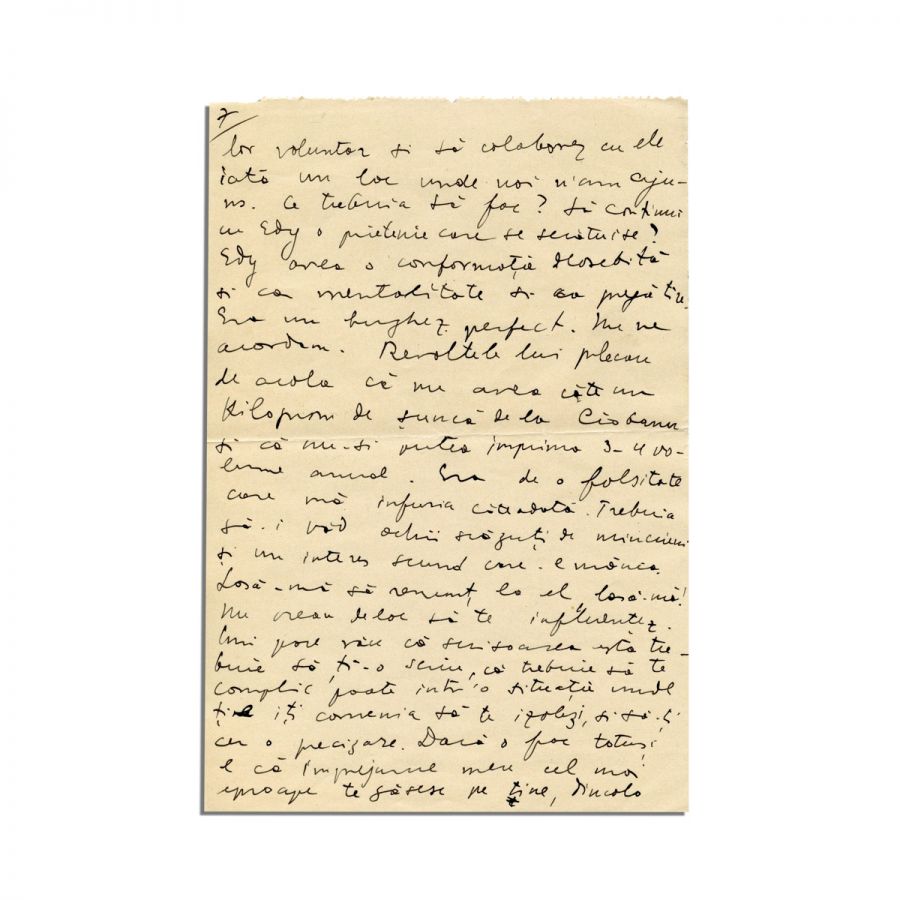 7
lor voluntar si să colaborez cu ele
iată un loc unde noi n'am aju-
ns. Ce trebuia să fac? Să continui
cu Edy o prietenie care se scrântuise?
Edy avea o conformație deosebită
si ca mentalitate si ca pregătire.
Era un burghez perfect. Nu ne
acordam. Revoltele lui plecau
de acolo că nu avea câte un
Kilogram de șuncă de la Ciobanu
și că nu-si putea imprima 3-4 vo-
lume anual. Era de o falsitate
care mă infuria câteodată. Trebuia
să-i văd ochii scăzuți de minciuni
și un interes scund care-l mânca.
Lasă-mă să renunț la el lasă-mă!
Nu vreau deloc să te influențez.
Îmi pare rău că scrisoarea asta tre-
buie să ți-o scriu, că trebuie să te
complic poate intr'o situație unde
ție iți convenia să te izolezi, si să-ți
cer o precizare. Dacă o fac totusi
e că împrejurul meu cel mai
aproape te găsesc pe tine, dincolo